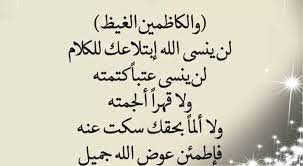 (والكاظمين الغيظ)
لن ينسى الله إبتلاعك للكلام
لن ينسى عتباً كتمته
ولا قهراً ألجمته
ولا ألماً بحقك سكت عنه
فإطمئن عوض الله جميل